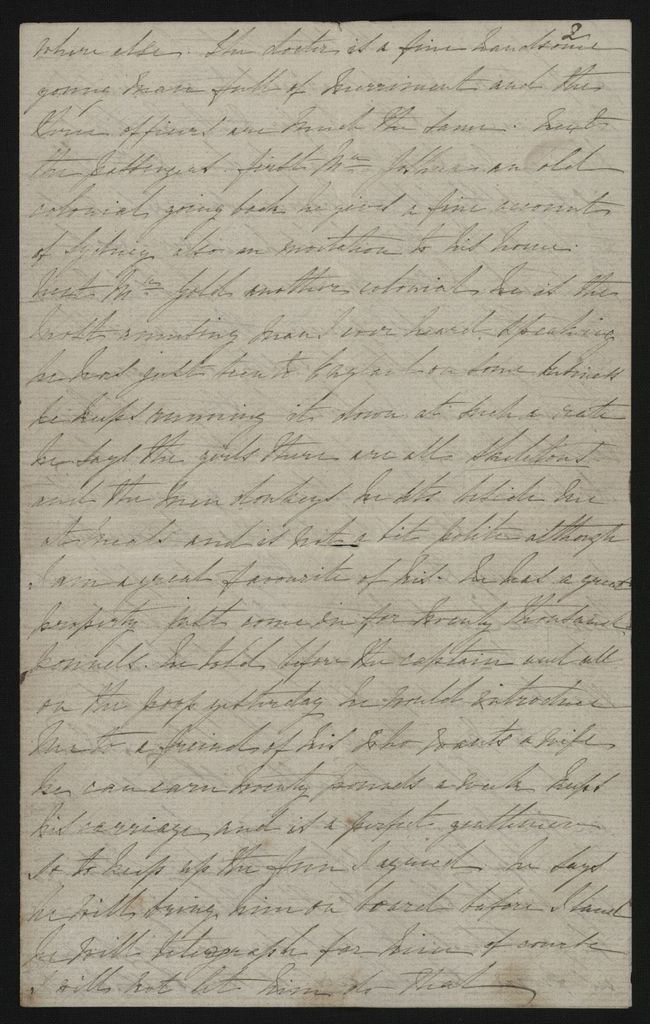 2
where else. The doctor is a fine handsome
young man full of merriment and the
other officers are much the same. Next
the passengers first Mr an old
colonial going back he gives a fine account
of Sydney also an invitation to his home.
Next Mr Gold another colonial he is the
most amusing man I ever heard speaking
he has just been to England on some business
he keeps running it down at such a rate
he says the girls there are all skeletons
and the men donkeys he sits beside me
at meals and is not a bit polite although
I am a great favourite of his. he has a great
property just come in for twenty thousand
pounds. he told before the captain and all
on the poop yesterday he would introduce
me to a freind of his who wants a wife
he can earn twenty pounds a week keeps
his carriage and is a perfect gentleman
so to keep up the fun I agreed he says
he will bring him on board before I land
he will telegraph for him of course
I will not let him do that